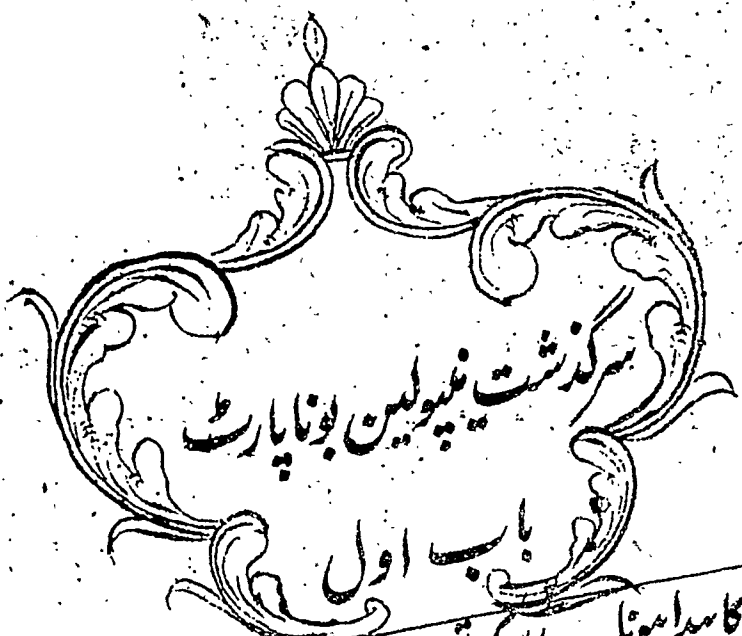 سرگذشت نیپولین بوناپارٹ
باب اول
کا پیدا ہونا